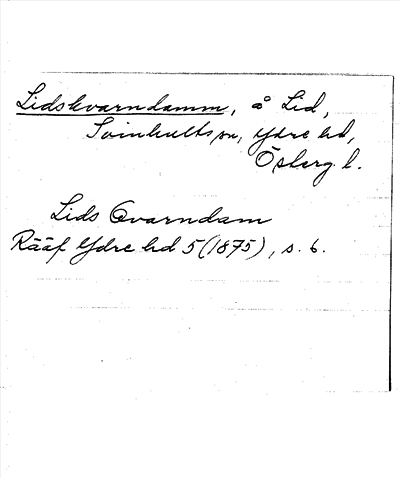 Lidskvarndamm, å Lid,
Svinhults sn, Ydre hd,
Österg. l.
Lids Qvarndam
Rääf Ydre hd 5 (1875), s. 6.